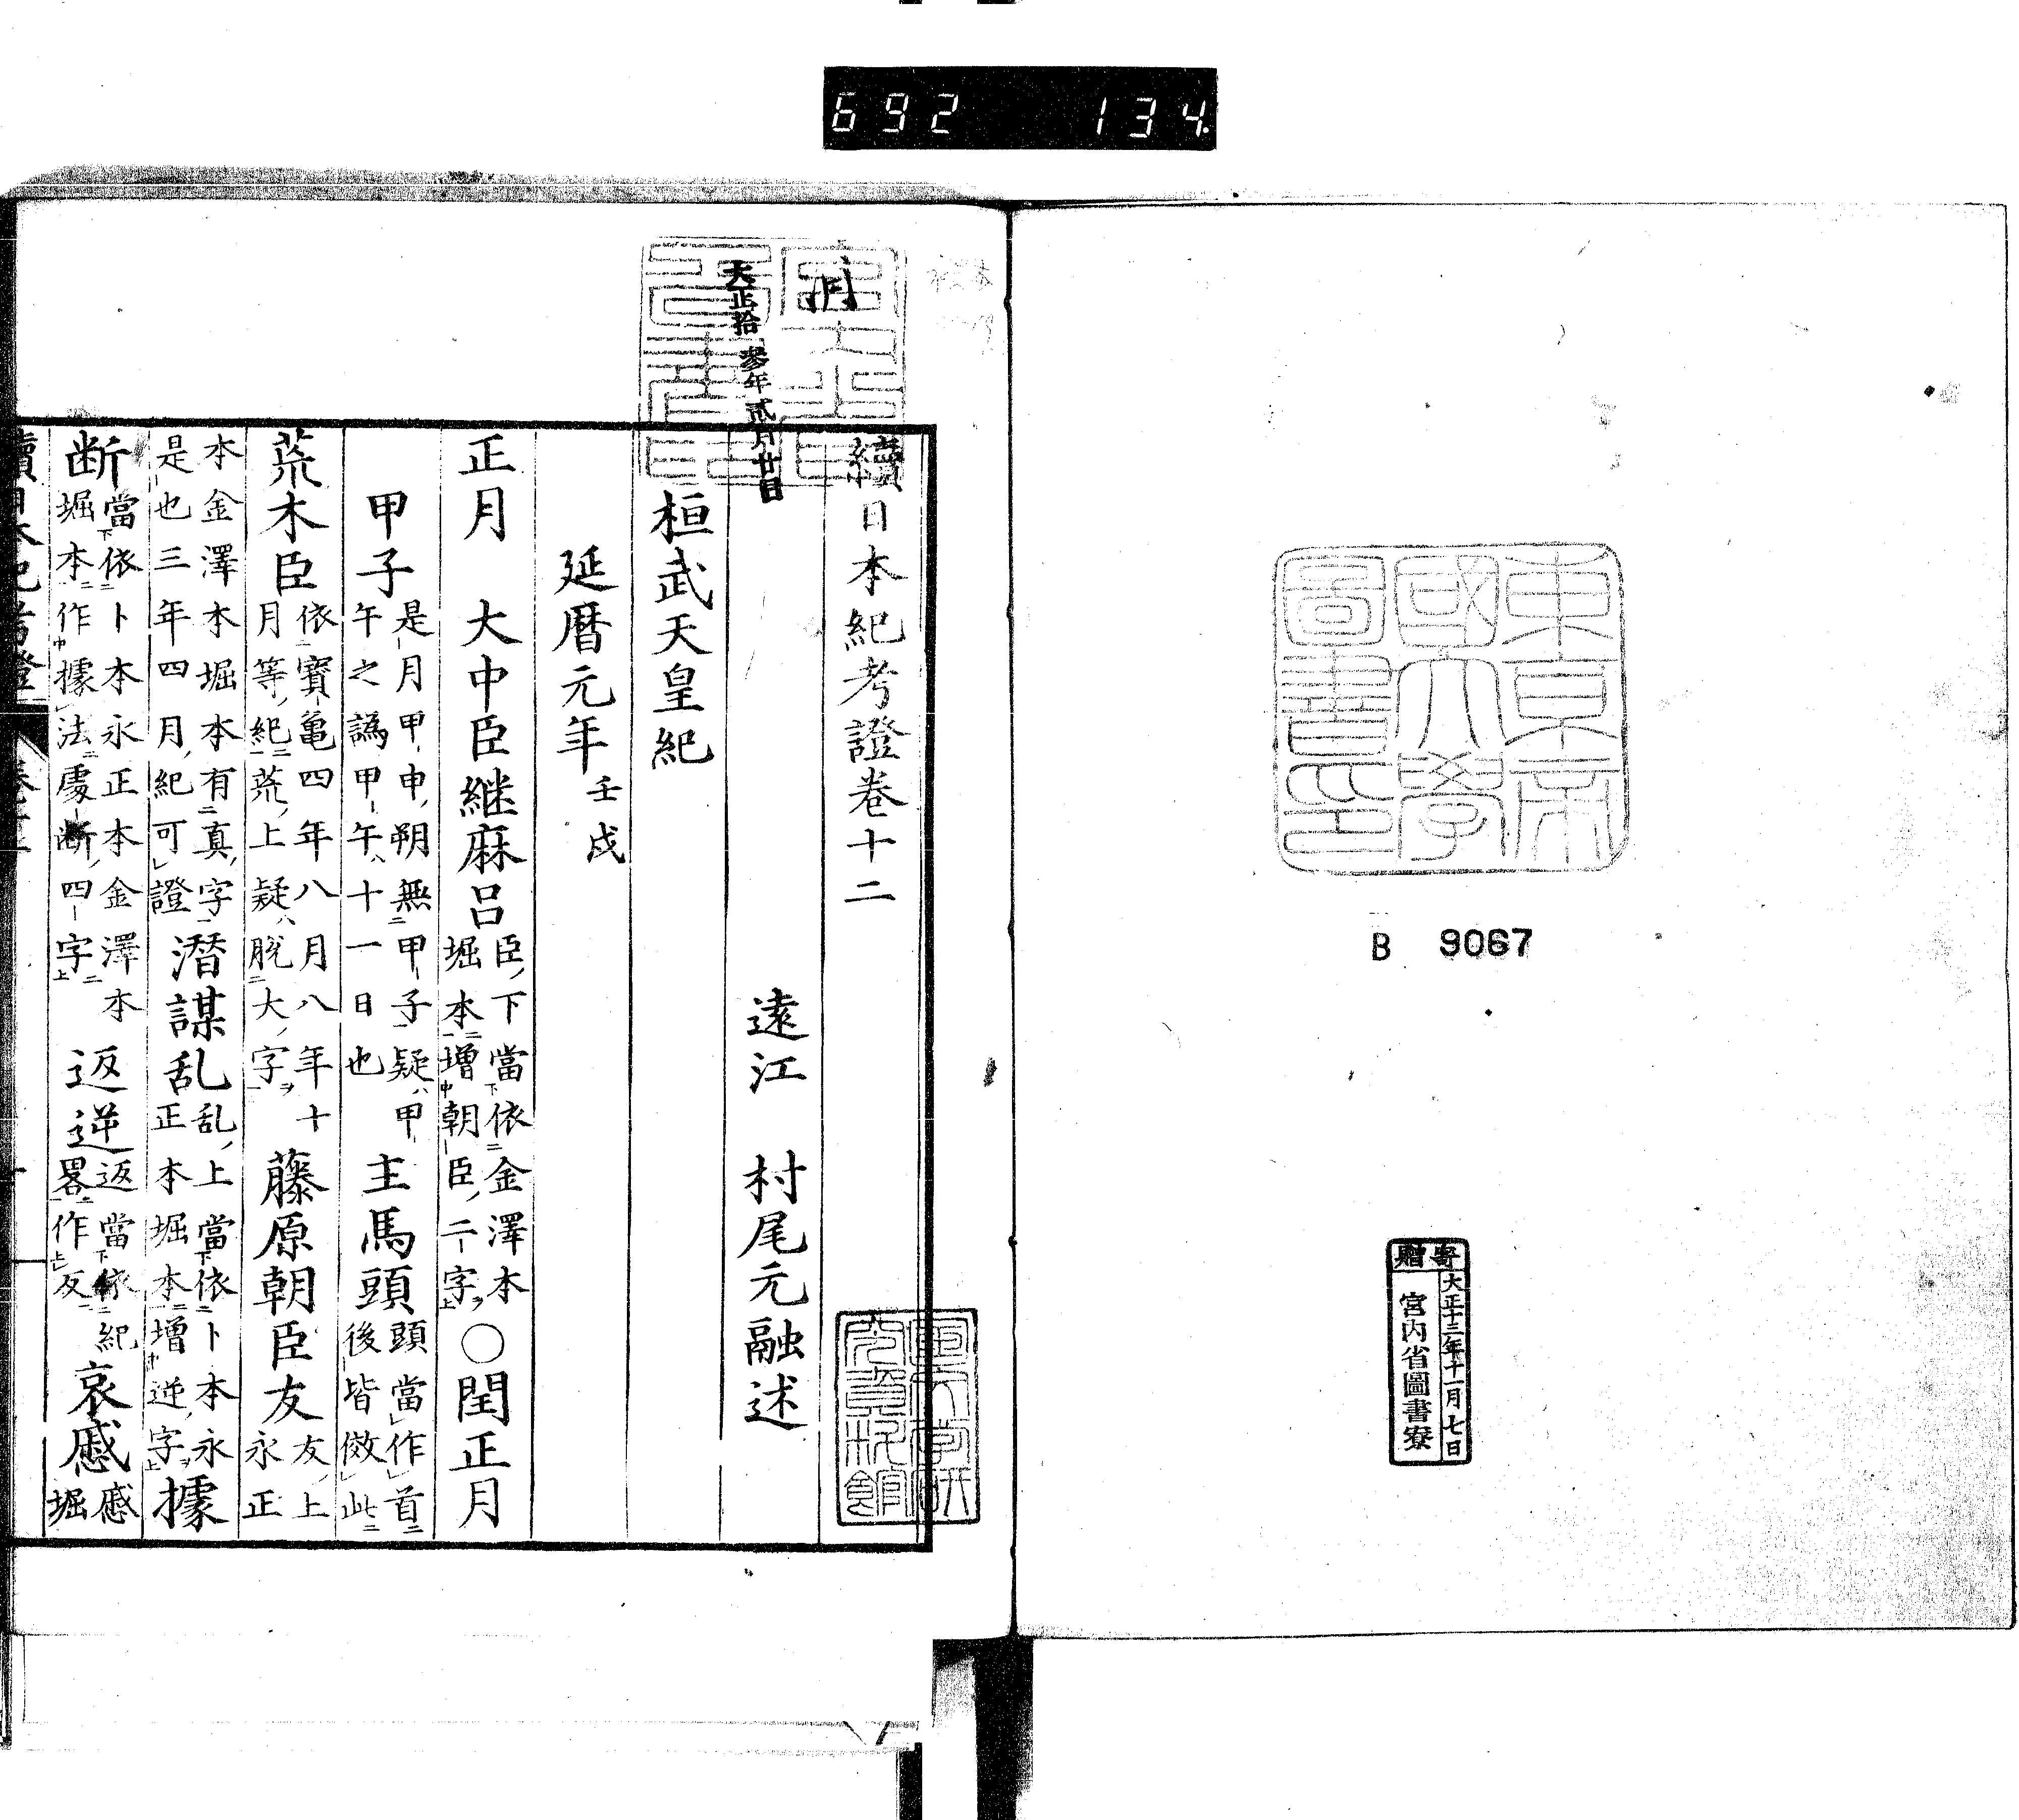 692 134
東京帝
國大學
圖書印
B 9067
寄贈
大正十三年十一月七日
宮内省圖書寮
大正拾參年貳月廿日
續日本紀考證卷十二
遠江 村尾元融述
桓武天皇紀
延暦元年 壬戌
正月 大中臣継麻呂 臣、下當下依二金澤本堀本一増中朝臣二字上 ○閏正月
甲子 是月甲申朔無二甲子一疑ハ甲午之譌甲午ハ十一日也 主馬頭 頭當作首後皆倣此二
荒木臣 依二寶亀四年八月八年十月等紀一荒上疑ハ脱二大字一ヲ 藤原朝臣友 友、上永正
本金澤本堀本有二真字一是也三年四月紀可證 潜謀乱 乱、上當下依二卜本永正本堀本一増中逆字上ヲ 據
断 當下依二卜本永正本金澤本堀本一作中據法處断四字上 返逆 返當下依二紀畧一作上反 哀慼 慼堀